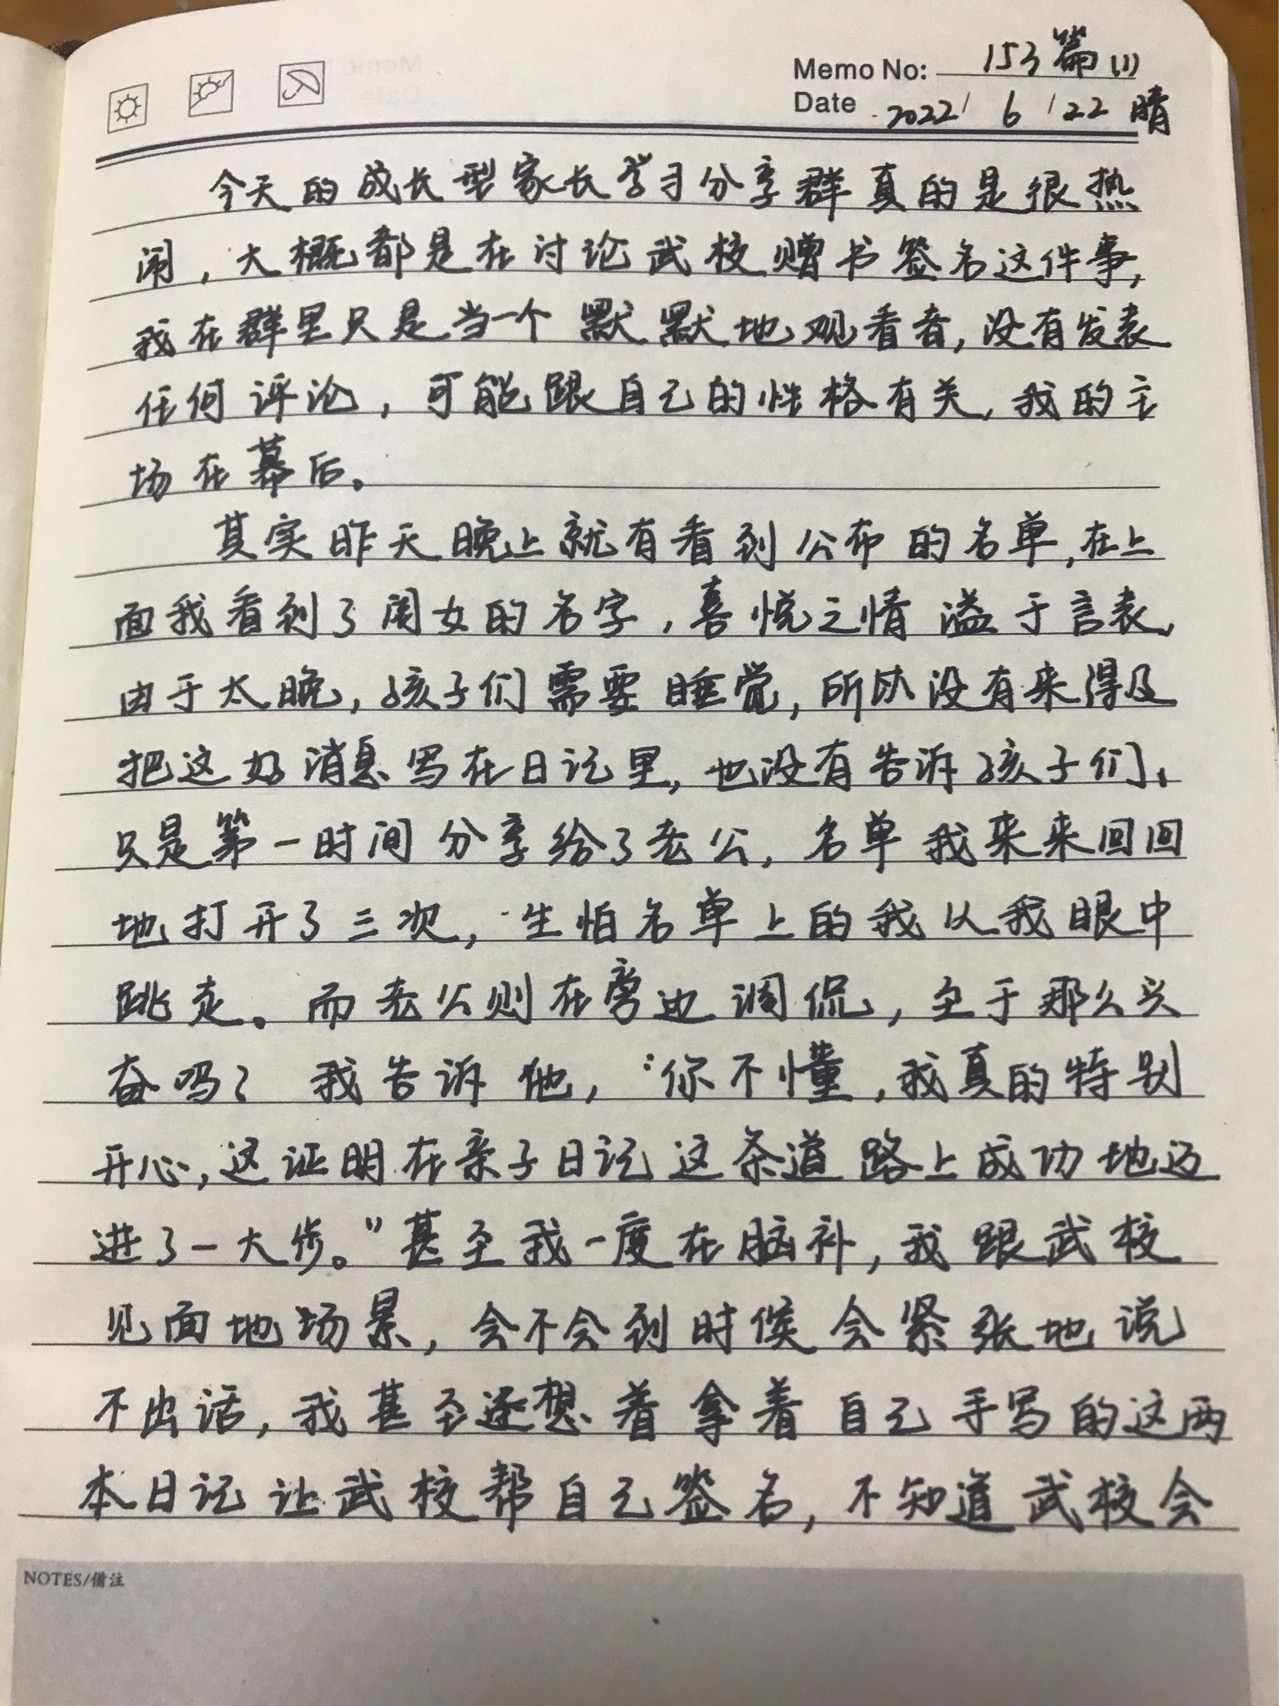 Memo No: 153篇(1)
Date 2022/ 6 /22 晴
今天的成长型家长学习分享群真的是很热
闹，大概都是在讨论武校赠书签名这件事，
我在群里只是当一个默默地观看者，没有发表
任何评论，可能跟自己的性格有关，我的主
场在幕后。
其实昨天晚上就有看到公布的名单，在上
面我看到了闺女的名字，喜悦之情溢于言表，
由于太晚，孩子们需要睡觉，所以没有来得及
把这好消息写在日记里，也没有告诉孩子们，
只是第一时间分享给了老公，名单我来来回回
地打开了三次，生怕名单上的我从我眼中
跳走。而老公则在旁边调侃，至于那么兴
奋吗？我告诉他，“你不懂，我真的特别
开心，这证明在亲子日记这条道路上成功地迈
进了一大步。”甚至我一度在脑补，我跟武校
见面地场景，会不会到时候会紧张地说
不出话，我甚至还想着拿着自己手写的这两
本日记让武校帮自己签名，不知道武校会
NOTES/備注